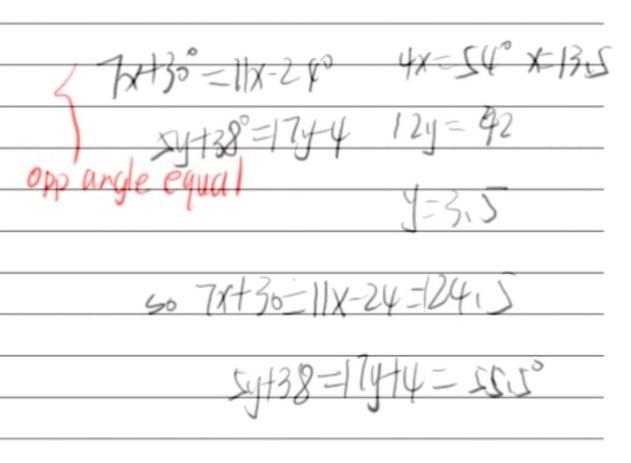 7x+30°=11x-24° 4x=54° x=13.5
5y+38°=17y-4 12y=42
opp angle equal
y=3.5
so 7x+30=11x-24=124.5
5y+38=17y+4=55.5°